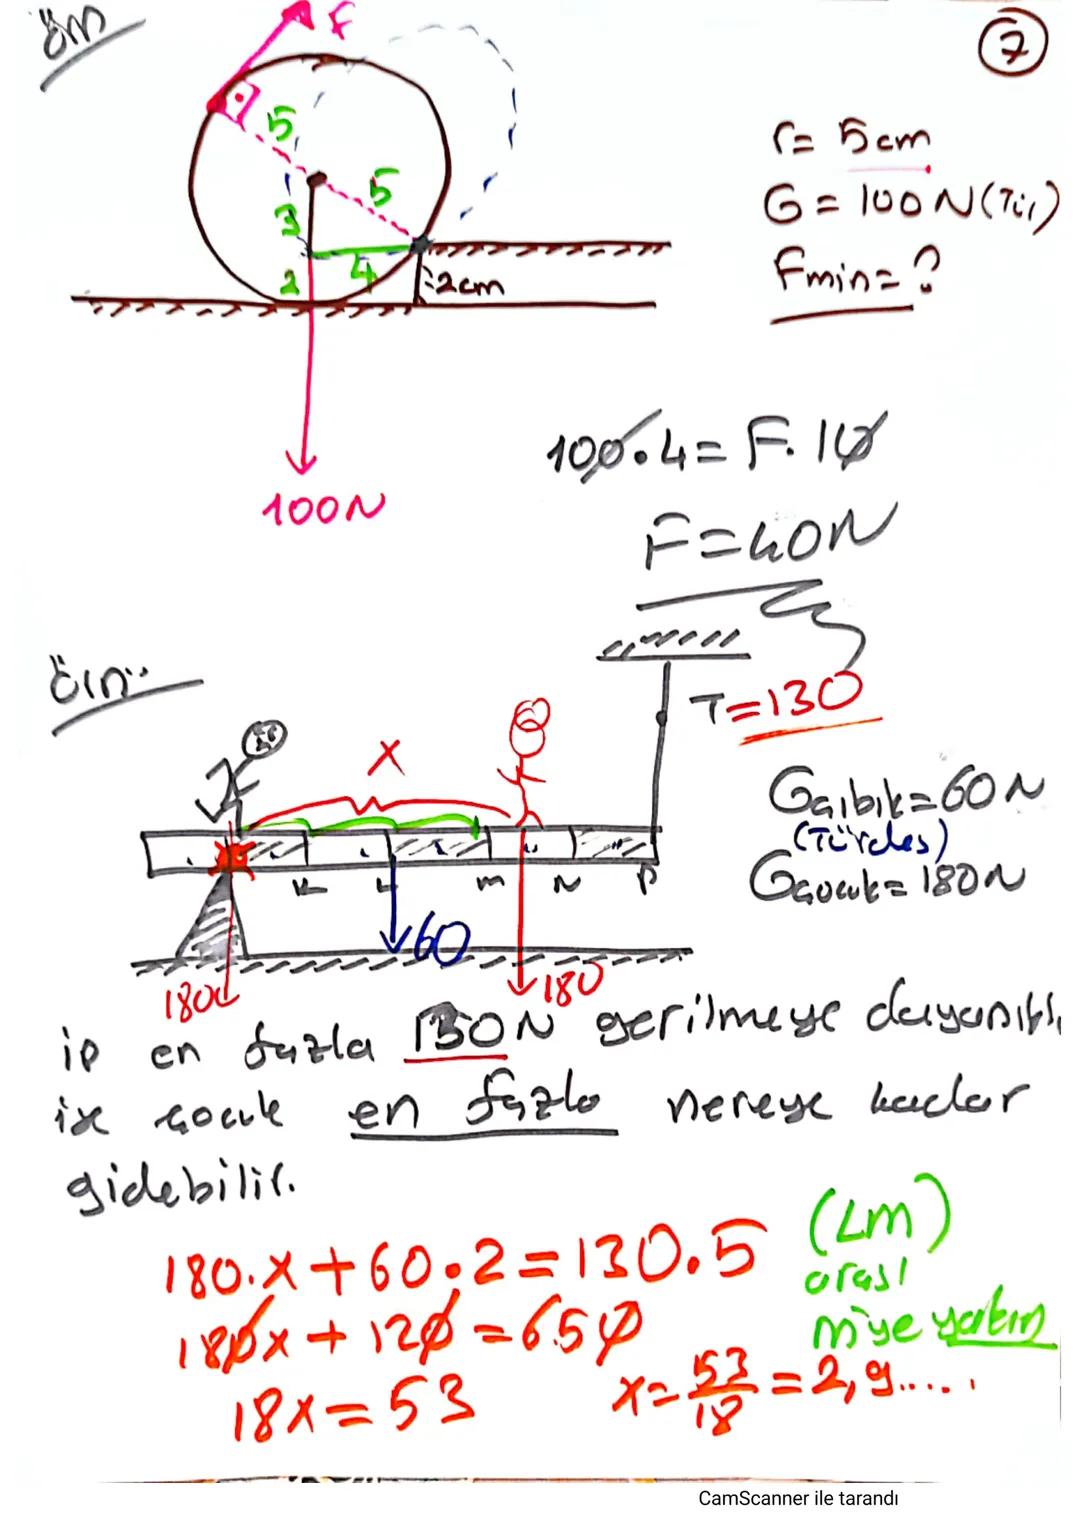 örn
7
F
5
5
3
4
2
2cm
100N
r= 5cm
G= 100N(Tür)
Fmin=?
100.4= F.10
F=40N
örn:
T=130
x
Gçubuk=60N
(Türdeş)
Gçocuk=180N
K L M N P
60
180
180
ip en fazla 130N gerilmeye dayanıklı
ise çocuk en fazla nereye kadar
gidebilir.
180.x+60.2=130.5
(LM)
arası
180x+120=650
M'ye yakın
18x=53
x=53/18=2,9.....
CamScanner ile tarandı